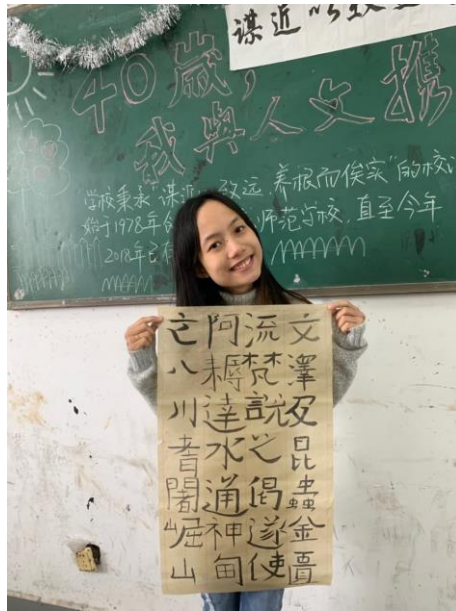 谋近
40歲，
我與人文携
学校秉承“谋近 致远，养根而俟实”的校
始于1978年 师范学校，直至今年
2018年已
文澤及昆蟲金匱
流梵說之偈遂使
阿耨達水通神甸
之八川耆闍崛山